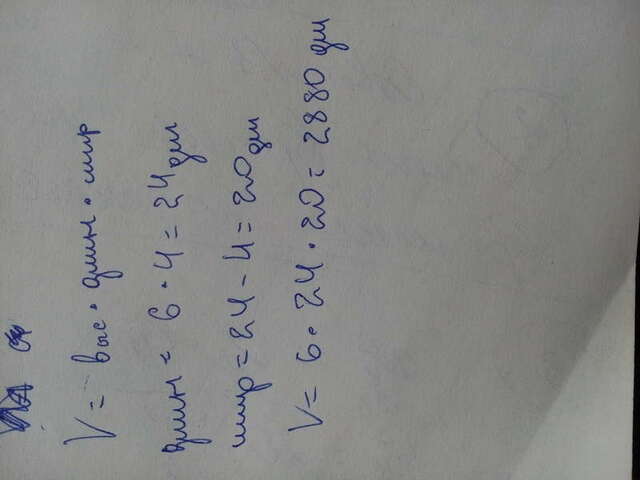 V = выс · длин · шир
длин = 6 · 4 = 24 дм
шир = 24 - 4 = 20 дм
V = 6 · 24 · 20 = 2880 дм